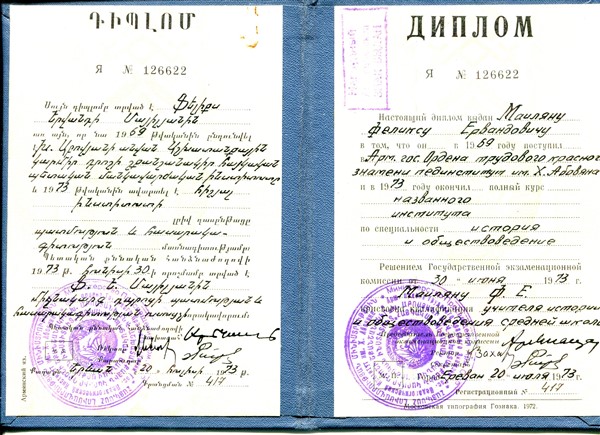 ԴԻՊԼՈՄ
Я № 126622
Սույն դիպլոմը տրված է Ֆելիքս
Երվանդի Մայիլյանին
առ այն, որ նա 1969 թվականին ընդունվել
է Խ. Աբովյանի անվան Աշխատանքային
կարմիր դրոշի շքանշանակիր հայկական
պետական մանկավարժական ինստիտուտը
և 1973 թվականին ավարտել է հիշյալ
ինստիտուտի
լրիվ դասընթացը
պատմություն և հասարակա-
գիտություն մասնագիտությամբ
Պետական քննական հանձնաժողովի
1973 թ. հունիսի 30 ի որոշմամբ
Ֆ. Ե. Մայիլյանին
միջնակարգ դպրոցի պատմության և
հասարակագիտության ուսուցչի
Երևան 20 հուլիսի 1973 թ.
Գրանցման № 417
ДИПЛОМ
Я № 126622
Настоящий диплом выдан Маиляну
Феликсу Ервандовичу
в том, что он в 1969 году поступил
в Арм. гос. Ордена трудового красного
знамени пединститут им. Х. Абовяна
и в 1973 году окончил полный курс
названного
института
по специальности история
и обществоведение
Решением Государственной экзаменационной
комиссии от 30 июня 1973 г.
Маиляну Ф. Е.
присвоена квалификация учителя истории
и обществоведения средней школы
Ереван 20 июля 1973 г.
Регистрационный № 417
Московская типография Гознака. 1972.
Армянский яз.